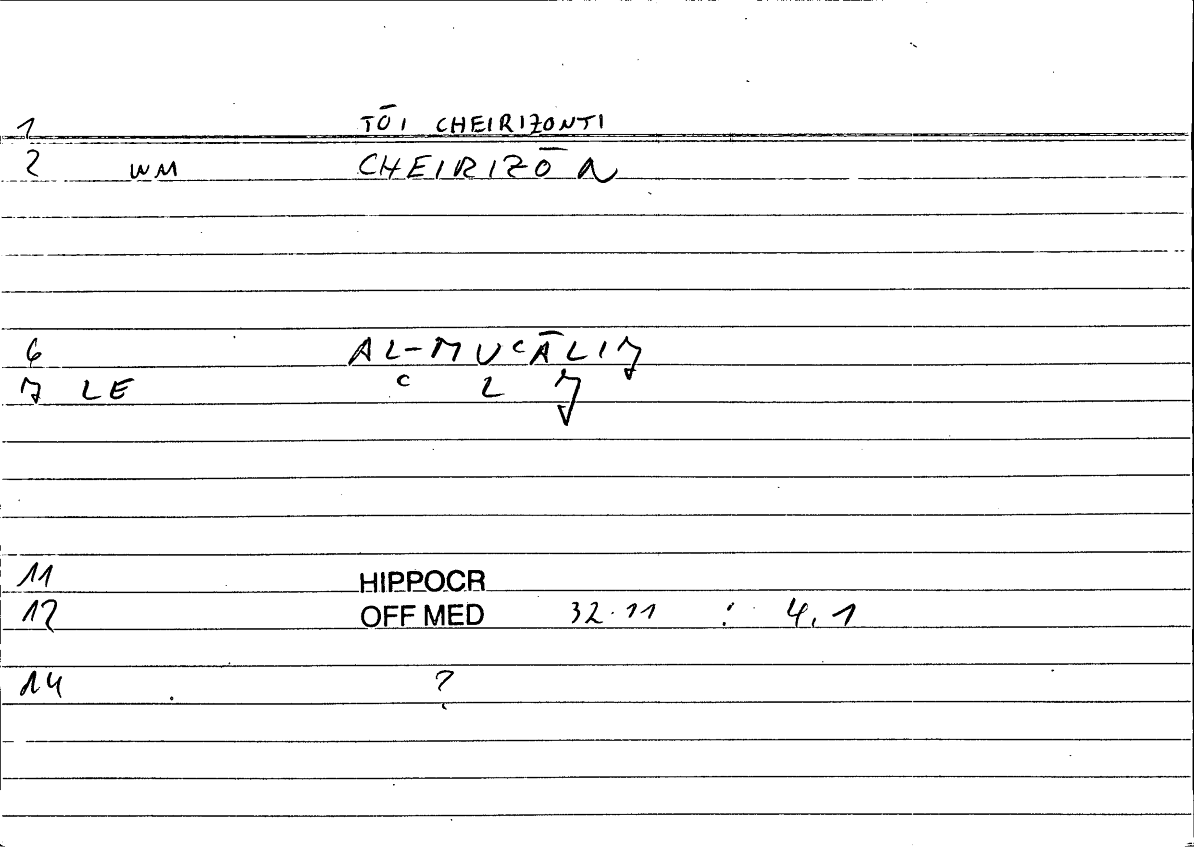 1 TŌI CHEIRIZONTI
2 WM CHEIRIZŌN
6 AL-MUCĀLIJ
7 LE C L J
11 HIPPOCR
12 OFF MED 32.11 : 4,1
14 ?